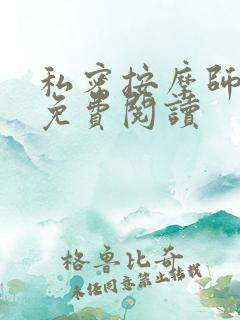 私密按摩師
免費閱讀
格魯比奇
未經同意禁止轉載